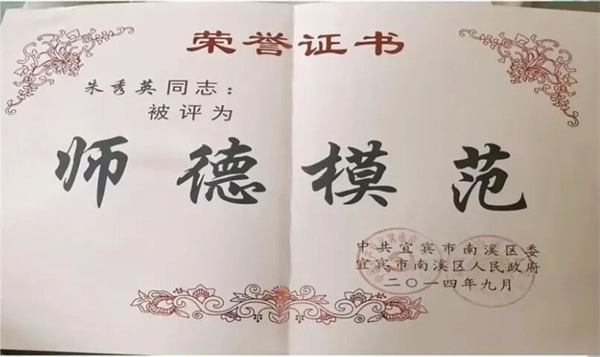 荣誉证书
朱秀英同志：
被评为
师德模范
中共宜宾市南溪区委
宜宾市南溪区人民政府
二〇一四年九月